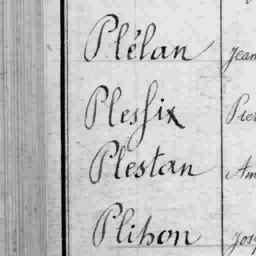 Plélan Jean
Plessix Pier
Plestan Am
Plihon Jos